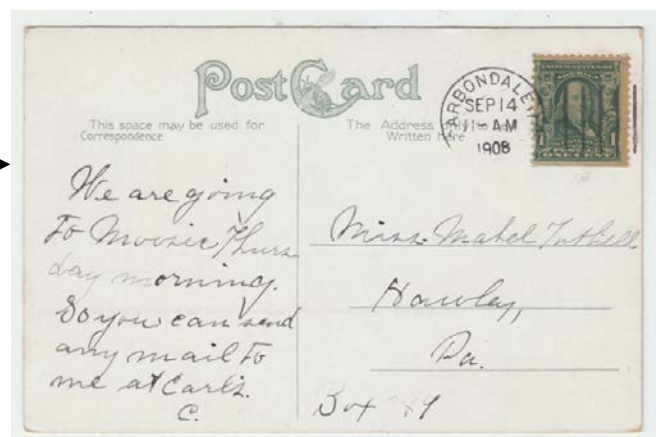 Post Card
This space may be used for
Correspondence
The Address only to be
Written here
CARBONDALE, PA.
SEP 14
11-AM
1908
UNITED STATES OF AMERICA
1
We are going
to Moosic Thurs-
day morning.
So you can send
any mail to
me at Carl's.
C.
Miss. Mabel Tuthill
Hawley,
Pa.
Box 49